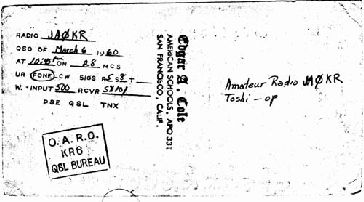 RADIO JAØKR
QSO OF March 6 1960
AT ON 28 MCS
UR FONE-CW SIGS RST
W. INPUT 500 RCVR
PSE QSL TNX
O.A.R.O.
KR6
QSL BUREAU
Edgar Cole
AMERICAN SCHOOLS, APO 331
SAN FRANCISCO, CALIF.
Amateur Radio JAØKR
Toshi-op